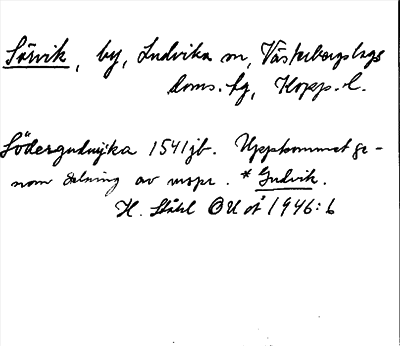 Sörvik, by, Ludvika sn, Västerbergslags
doms. fg, Kopp. l.
Södergudwijka 1541 jb. Uppkommet ge-
nom delning av urspr. * Gudvik.
H. Ståhl OUÅ 1946: 6